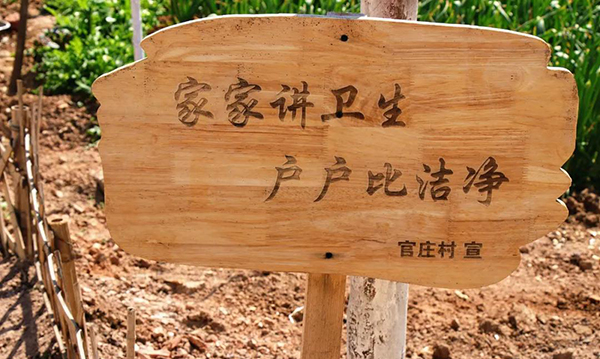 家家讲卫生
户户比洁净
官庄村 宣